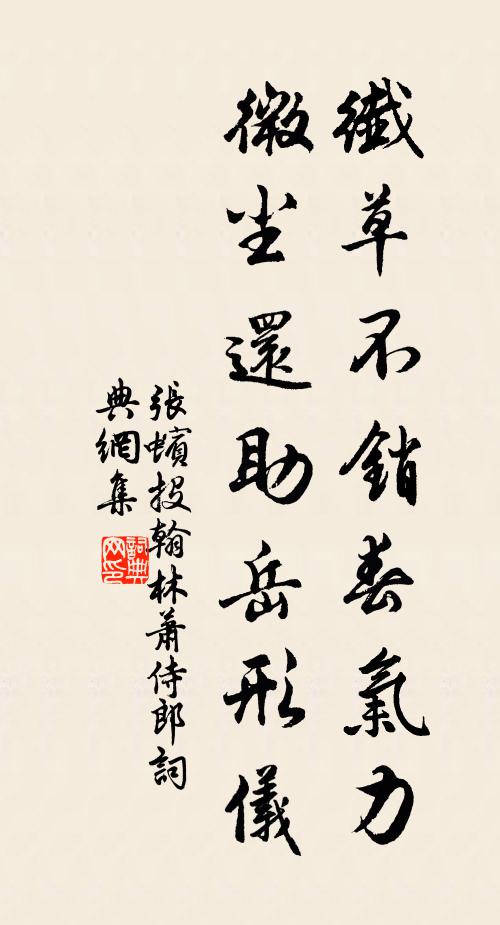 纖草不銷春氣力
微尘還助岳形儀
張蠙投翰林蕭侍郎詞
典網集
詞典
网印